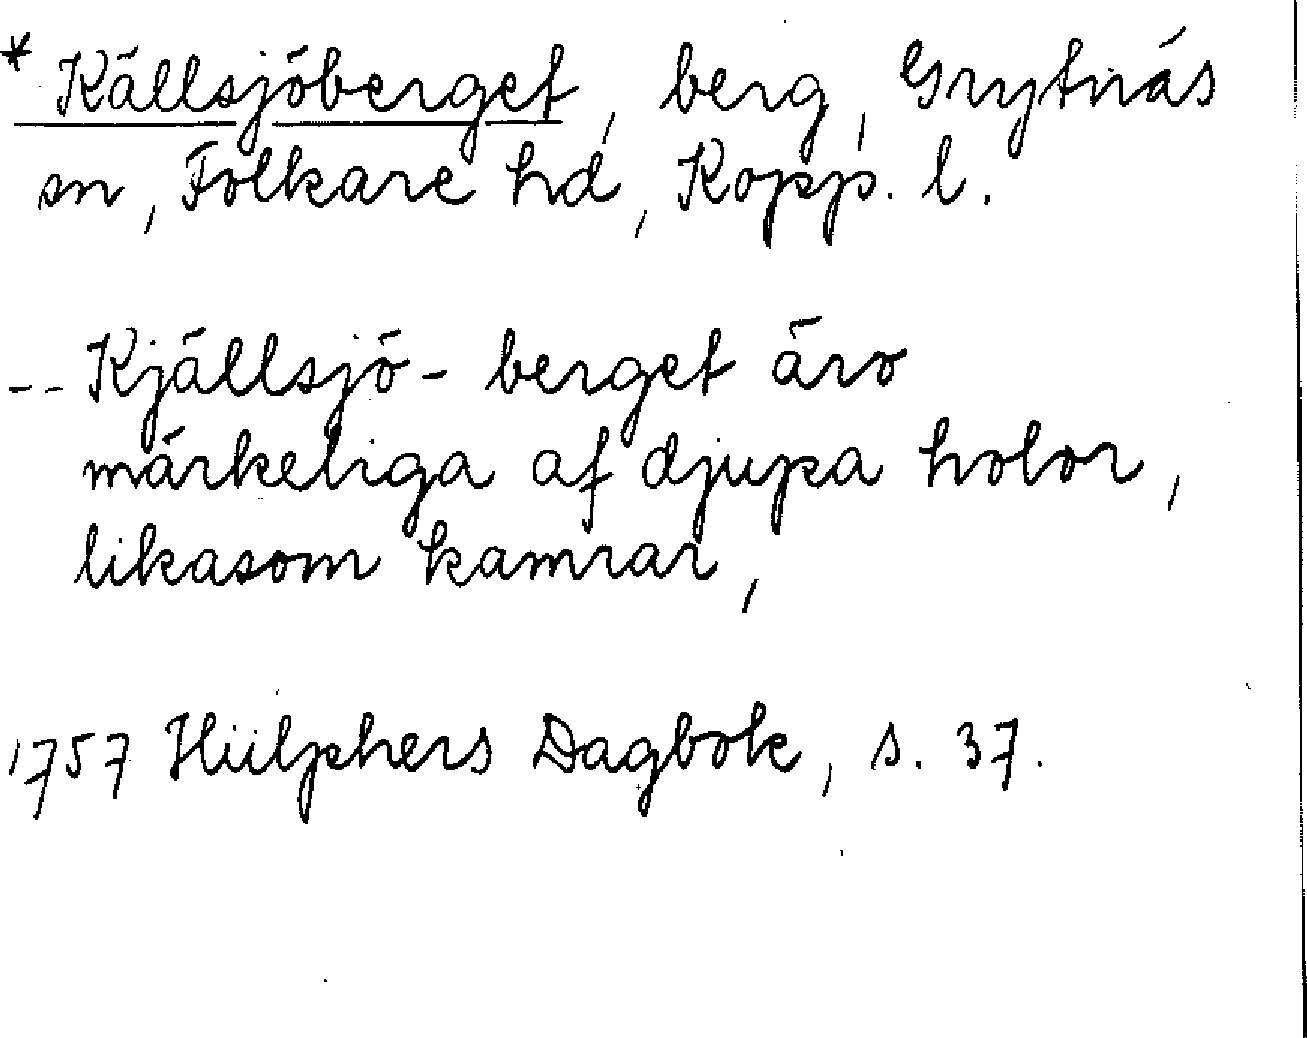 * Källsjöberget, berg, Grytnäs
sn, Folkare hd, Kopp. l.
-- Kjällsjö- berget äro
märkeliga af djupa holor,
likasom kamrar,
1757 Hülphers Dagbok, s. 37.